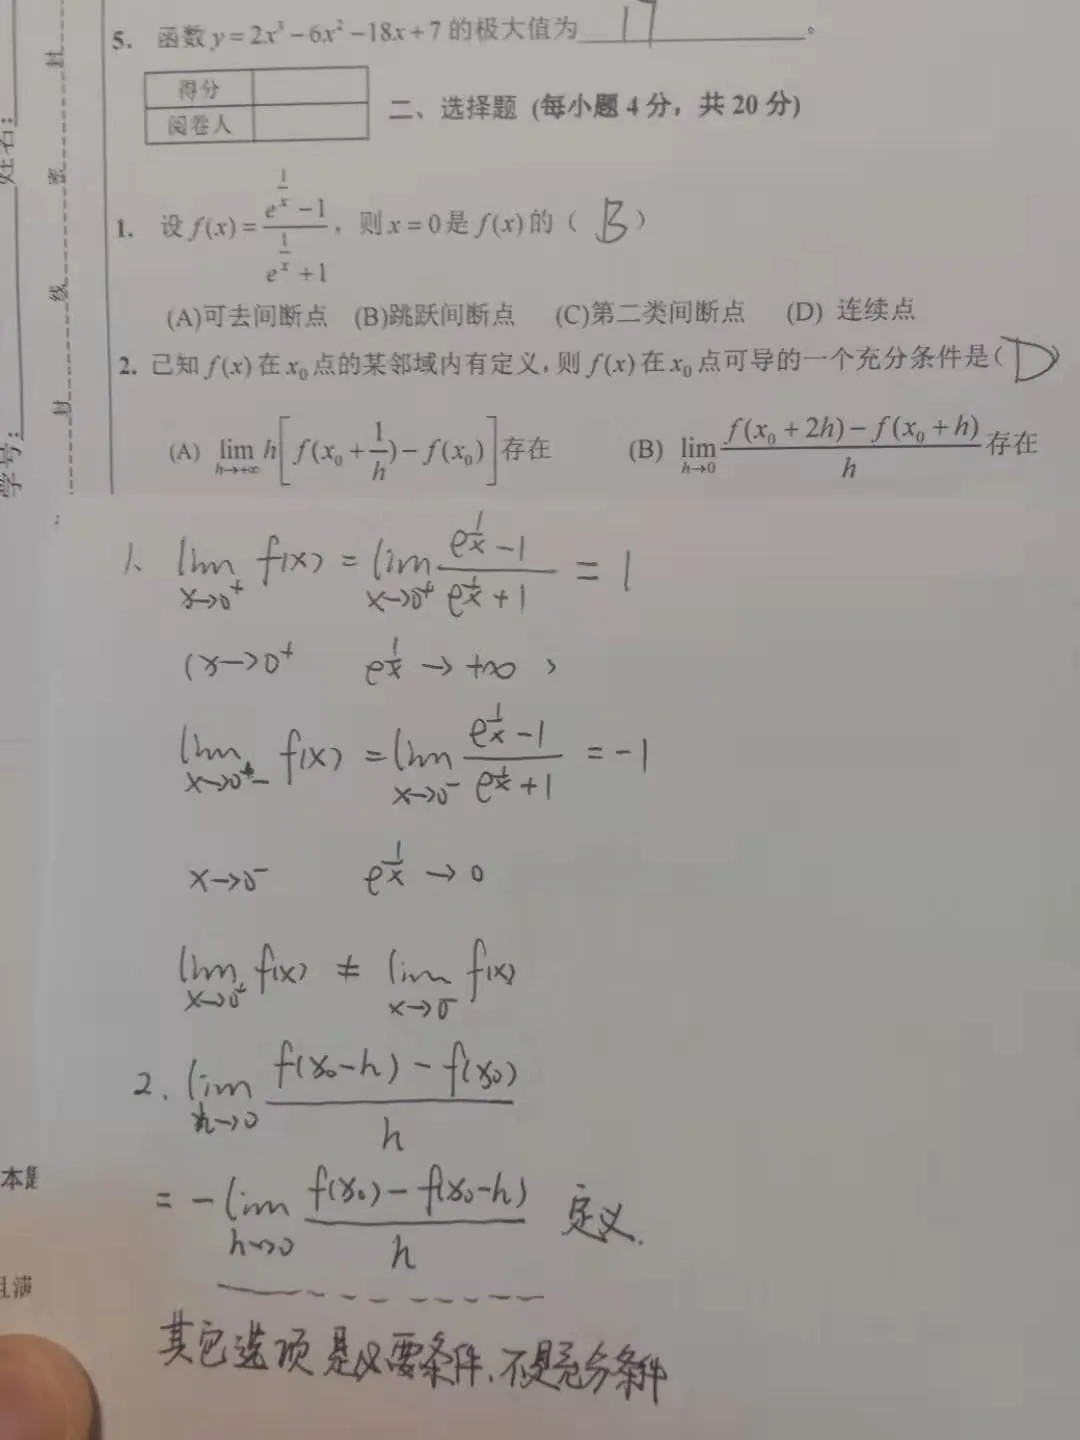 5. 函数 y = 2x³ − 6x² − 18x + 7 的极大值为 17 。
得分
阅卷人
二、选择题 (每小题 4 分，共 20 分)
1. 设 f(x) = (e^(1/x) − 1)/(e^(1/x) + 1)，则 x = 0 是 f(x) 的（ B ）
(A)可去间断点 (B)跳跃间断点 (C)第二类间断点 (D) 连续点
2. 已知 f(x) 在 x₀ 点的某邻域内有定义，则 f(x) 在 x₀ 点可导的一个充分条件是( D )
(A) lim_(h→+∞) h[f(x₀ + 1/h) − f(x₀)] 存在 (B) lim_(h→0) (f(x₀ + 2h) − f(x₀ + h))/h 存在
1、 lim_(x→0⁺) f(x) = lim_(x→0⁺) (e^(1/x) − 1)/(e^(1/x) + 1) = 1
(x→0⁺ e^(1/x) → +∞ )
lim_(x→0⁻) f(x) = lim_(x→0⁻) (e^(1/x) − 1)/(e^(1/x) + 1) = −1
x→0⁻ e^(1/x) → 0
lim_(x→0⁺) f(x) ≠ lim_(x→0⁻) f(x)
2. lim_(h→0) (f(x₀−h) − f(x₀))/h
= − lim_(h→0) (f(x₀) − f(x₀−h))/h 定义.
其它选项是必要条件、不是充分条件
姓名：
学号：
封
密
线
封
本题
且满